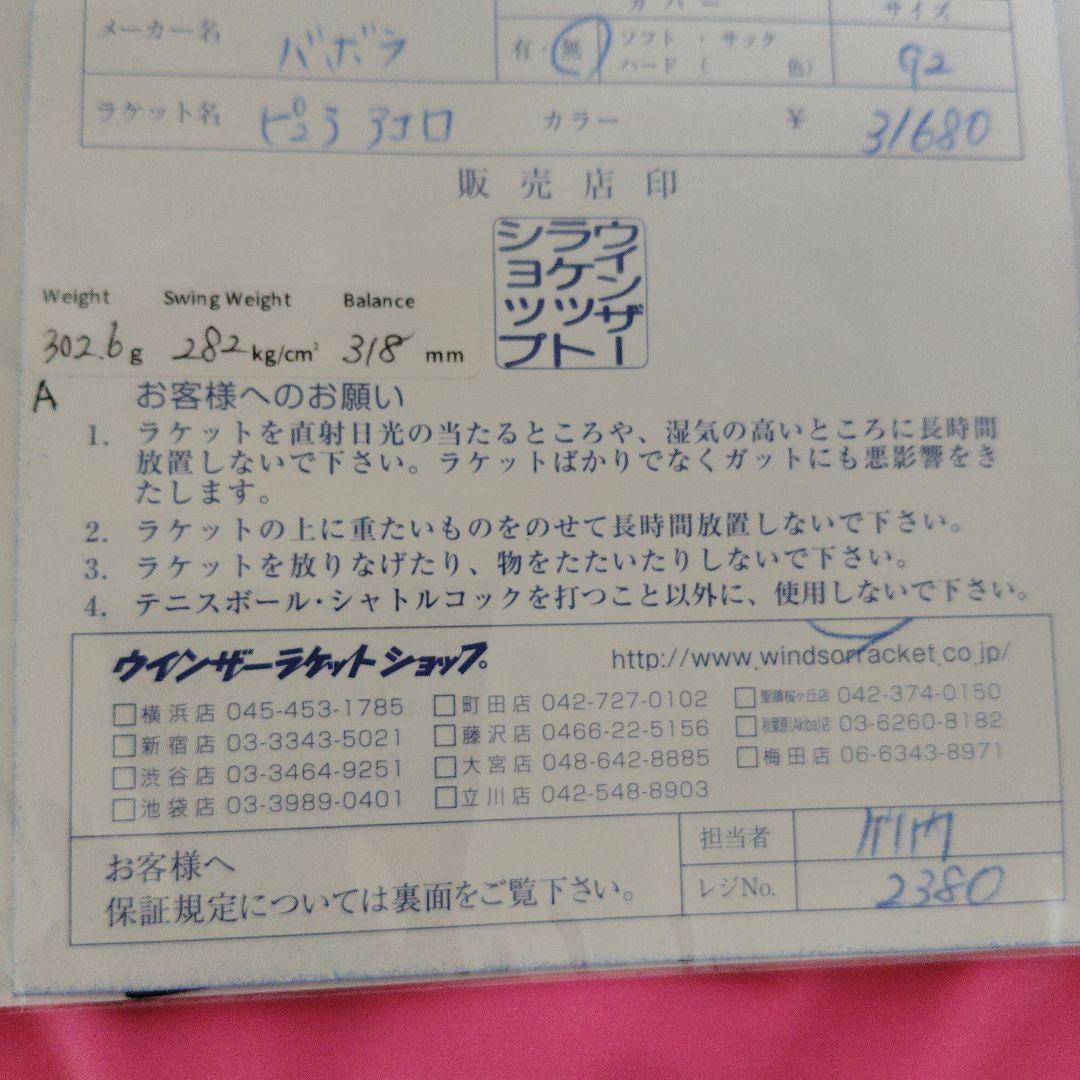 カバー サイズ
メーカー名 バボラ 有・無 ソフト・サック G2
ハード( 色)
ラケット名 ピュア アエロ カラー ¥ 31680
販売店印
ウインザー
ラケット
ショップ
Weight Swing Weight Balance
302.6 g 282 kg/cm² 318 mm
A
お客様へのお願い
1. ラケットを直射日光の当たるところや、湿気の高いところに長時間
放置しないで下さい。ラケットばかりでなくガットにも悪影響をき
たします。
2. ラケットの上に重たいものをのせて長時間放置しないで下さい。
3. ラケットを放りなげたり、物をたたいたりしないで下さい。
4. テニスボール・シャトルコックを打つこと以外に、使用しないで下さい。
ウインザーラケットショップ http://www.windsorracket.co.jp/
□横浜店 045-453-1785 □町田店 042-727-0102 □聖蹟桜ヶ丘店 042-374-0150
□新宿店 03-3343-5021 □藤沢店 0466-22-5156 □秋葉原(Akiba)店 03-6260-8182
□渋谷店 03-3464-9251 □大宮店 048-642-8885 □梅田店 06-6343-8971
□池袋店 03-3989-0401 □立川店 042-548-8903
お客様へ 担当者
保証規定については裏面をご覧下さい。 レジNo. 2380